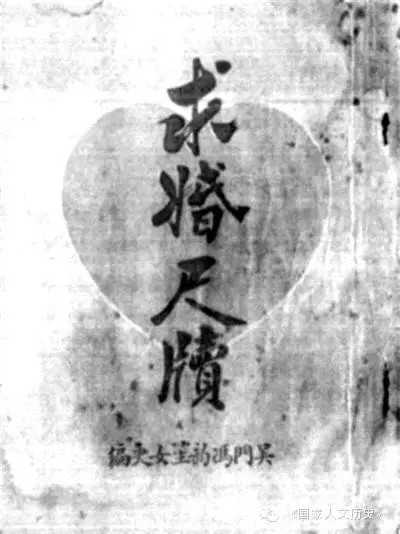 求婚尺牘
吳門馮韵笙女史編
《国家人文历史》